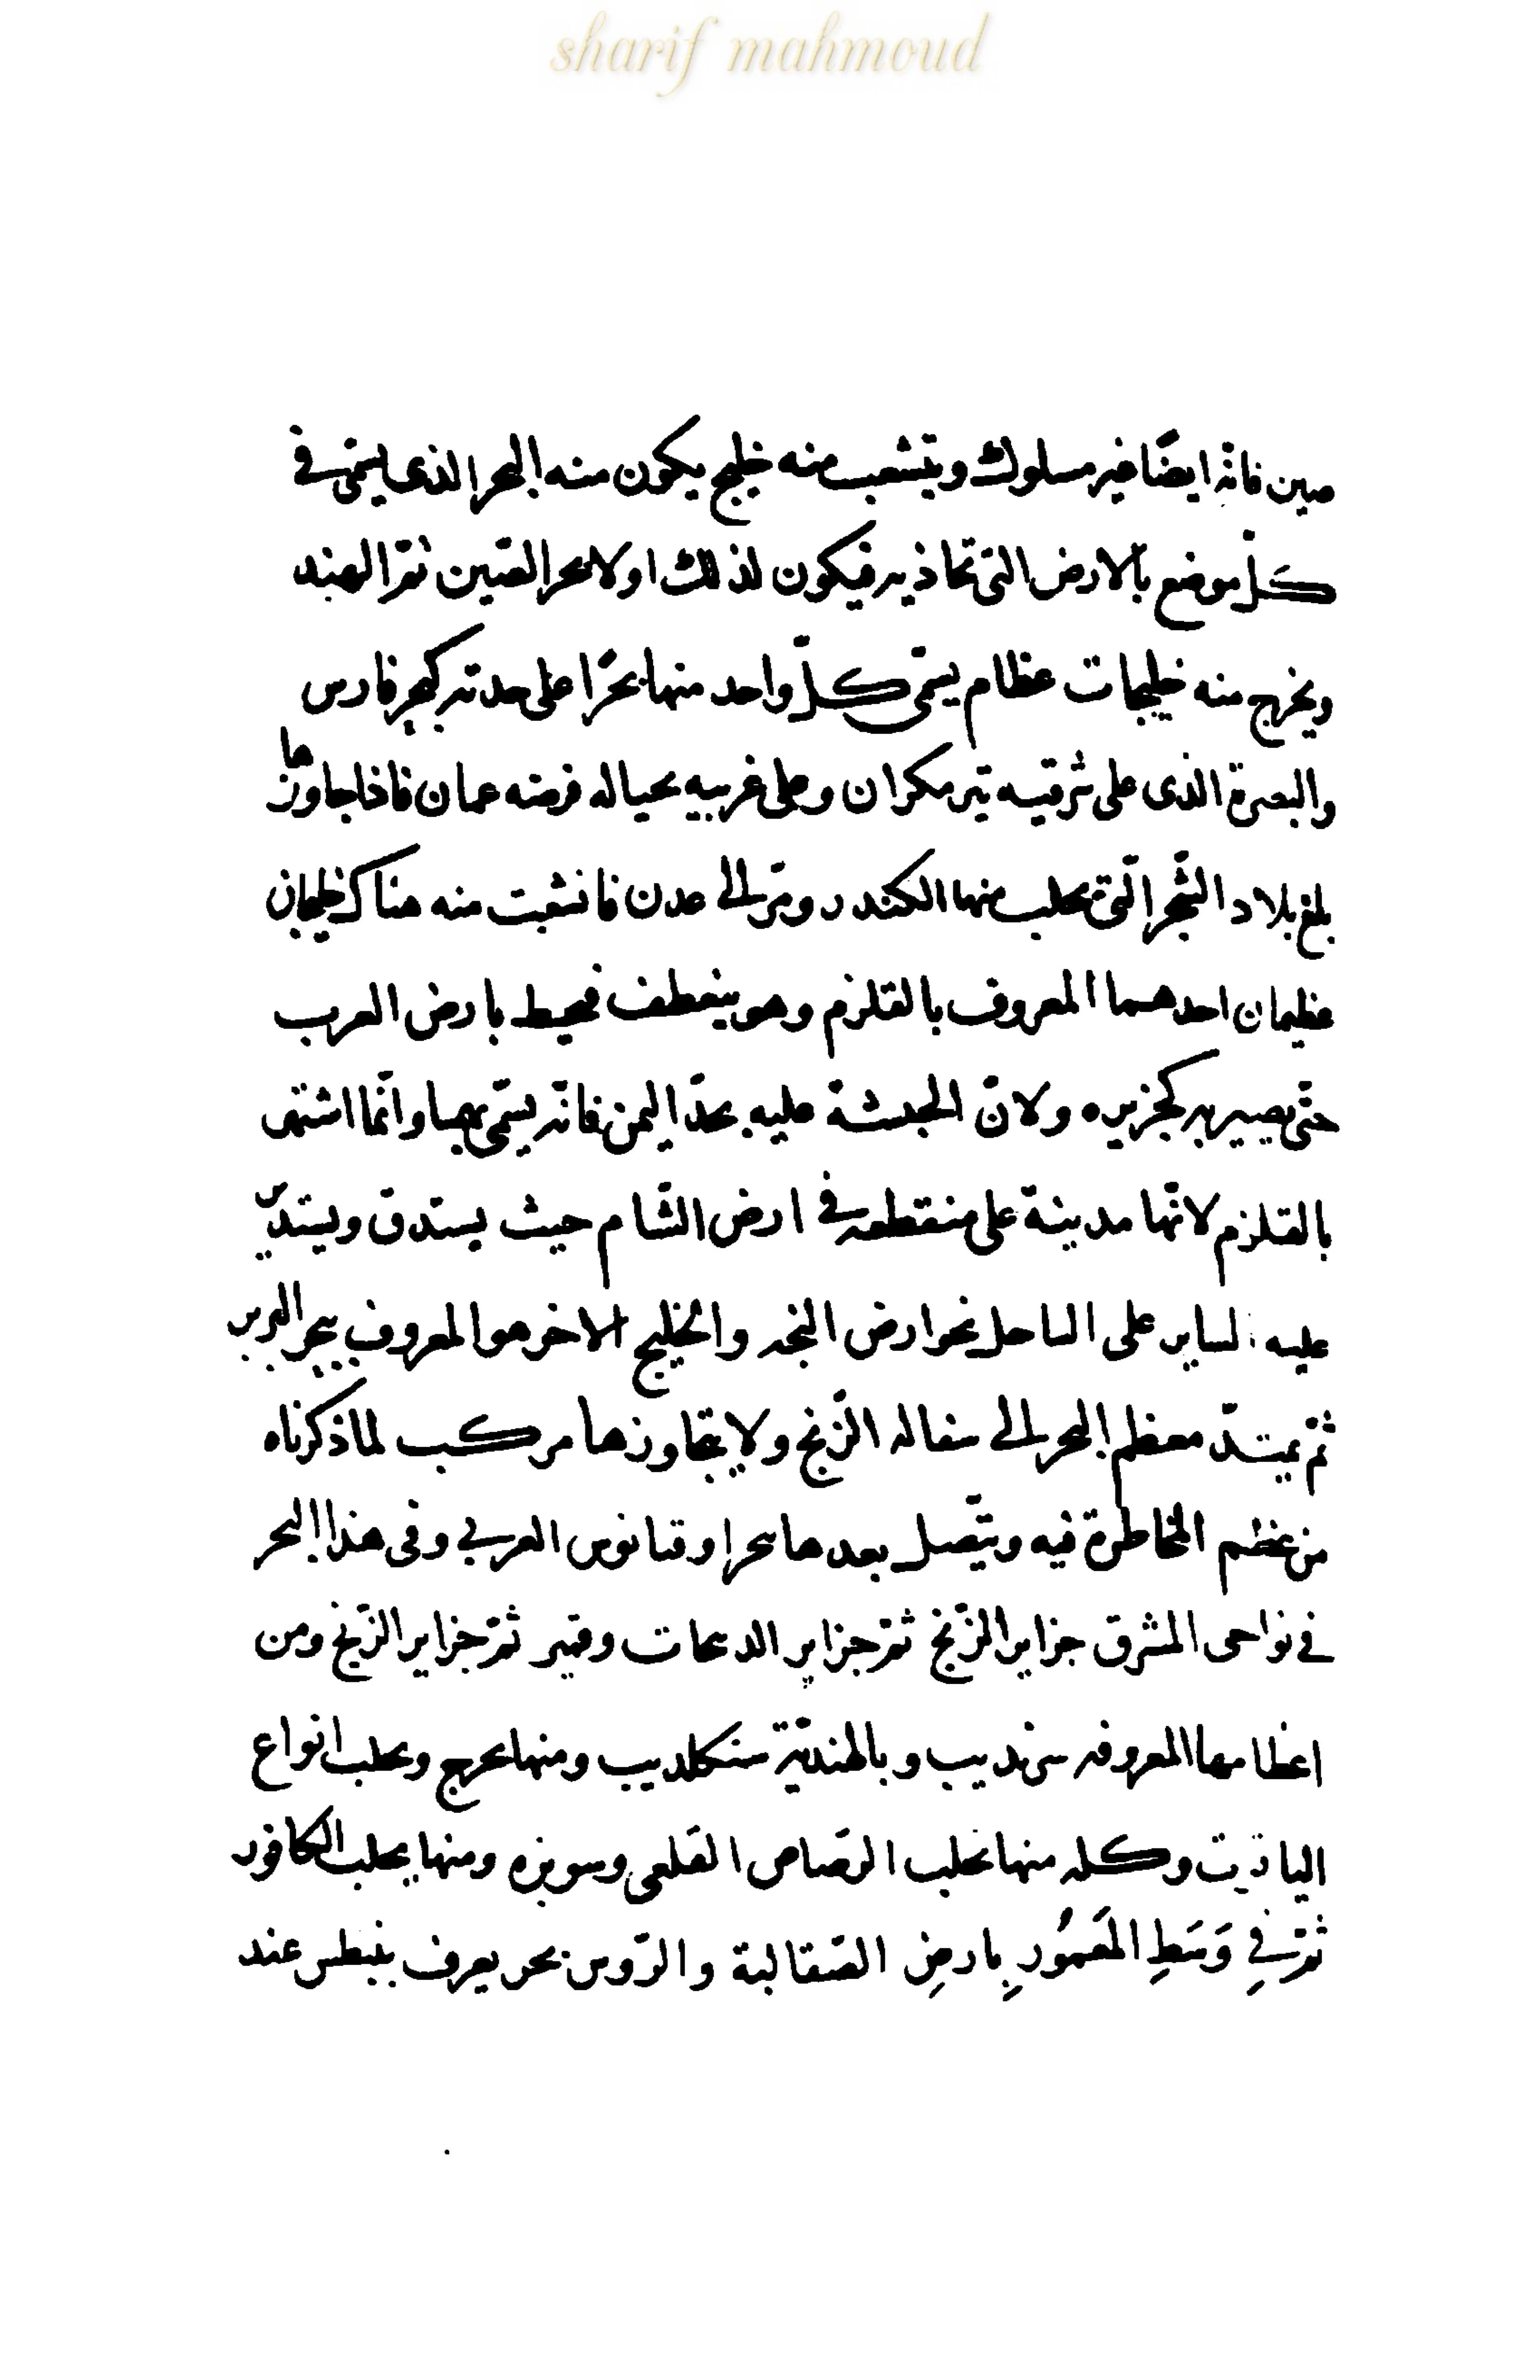 sharif mahmoud
صين فانّه ايضًا غير مسلوك ويتشعب منه خليج يكون منه البحر الذى يسمّى فى
كلّ موضع بالارض التى تحاذيه فيكون لذلك اولا بحر الصّين ثمّ الهند
ويخرج منه خليجات عظام يسمّى كلّ واحد منها بحرًا على حدته كبحر فارس
والبصرة الذى على شرقيه تيز مكران وعلى غربيه بحياله فرضه عمان فاذا جاوزها
بلغ بلاد الشّحر الّتى يجلب منها الكندر ومرّ الى عدن فانشعبت منه هناك خليجان
عظيمان احدهما المعروف بالقلزم وهو ينعطف فيحيط بارض العرب
حتّى يصير به كجزيره ولانّ الحبشة عليه بحذا اليمن فانّه يسمّى بهما وانّما اشتهر
بالقلزم لانّها مدينة على منقطعه فى ارض الشّام حيث يستدق ويستدير
عليه الساير على الساحل نحو ارض البجه والخليج الاخر هو المعروف ببحر البربر
ثمّ يمتدّ معظم البحر الى سفاله الزّنج ولا يتجاوزها مركب لما ذكرناه
من عظم المخاطرة فيه ويتّصل بعدها ببحر اوقيانوس الغربي وفى هذا البحر
فى نواحى المشرق جزاير الزّابج ثمّ جزاير الديبجات وقمير ثمّ جزاير الزّنج ومن
اعظامها المعروفه سرنديب وبالهنديّة سنكلديب ومنها يخرج ويجلب انواع
اليواقيت وكله منها يجلب الرّصاص القلعى وسربزه ومنها يجلب الكافور
ثمّ فِي وَسَطِ المَعمُورِ بِارضِ الصّقالبة والرّوس بحر يعرف ببنطس عند